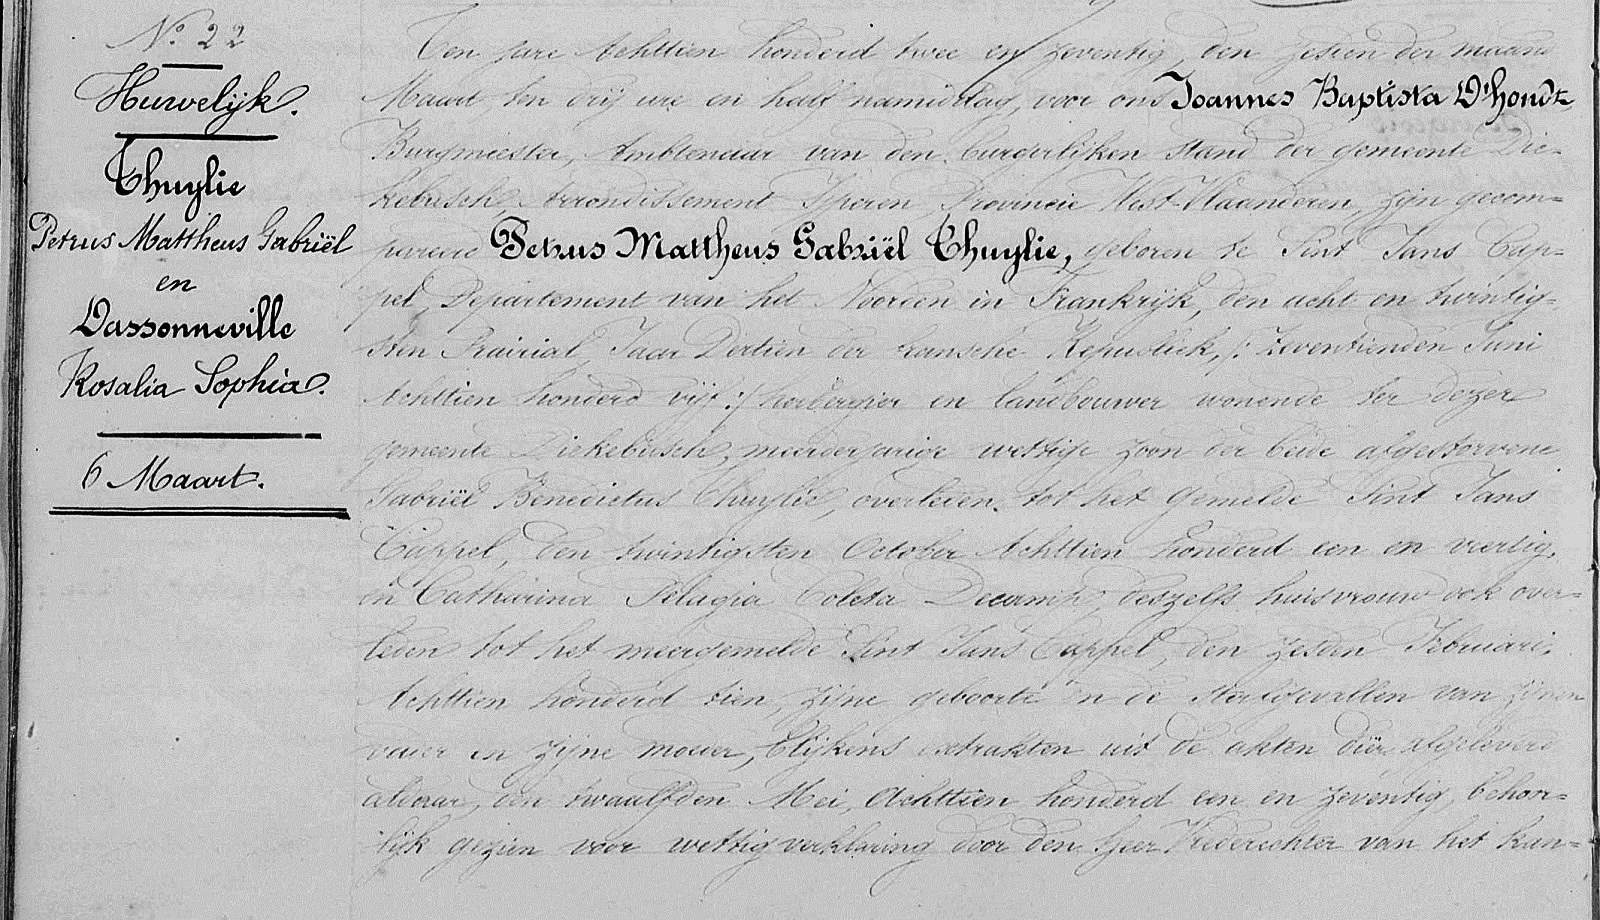 N.º 22
Huwelijk.
Thuylie
Petrus Mattheus Gabriël
en
Dassonneville
Rosalia Sophia.
6 Maart.
Ten jare Achttien honderd twee en zeventig, den zesten der maand
Maart, ten drij ure en half namiddag, voor ons Joannes Baptista D'hondt
Burgmeester, Ambtenaar van den burgerlijken stand der gemeente Die-
kebusch, Arrondissement Ijperen, Provincie West-Vlaanderen, zijn gecom-
pareerd Petrus Mattheus Gabriël Thuylie, geboren te Sint Jans Cap-
pel, Departement van het Noorden in Frankrijk, den acht en twintig-
sten Prairial, Jaar Dertien der fransche Republiek, /: zeventienden Juni
Achttien honderd vijf :/ herbergier en landbouwer wonende ter dezer
gemeente Diekebusch, meerderjarige wettige zoon der beide afgestorvene
Gabriël Benedictus Thuylie, overleden tot het gemelde Sint Jans
Cappel, den twintigsten October Achttien honderd een en veertig,
en Catharina Pelagia Coleta Decamp, deszelfs huisvrouw ook over-
leden tot het meergemelde Sint Jans Cappel, den zesden Februari,
Achttien honderd tien, zijne geboorte en de sterfgevallen van zijnen
vader en zijne moeder, blijkens extrakten uit de akten dier afgeleverd
aldaar, den twaalfden Mei, Achttien honderd een en zeventig, behoor-
lijk gezien voor wettig verklaring door den heer Vrederechter van het kan-